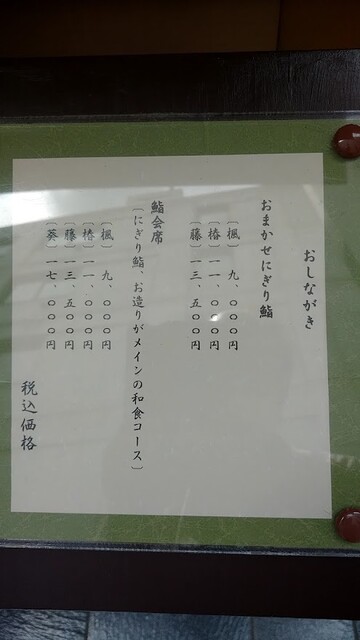 おしながき
おまかせにぎり鮨
〔楓〕 九、〇〇〇円
〔椿〕 一一、〇〇〇円
〔藤〕 一三、五〇〇円
鮨会席
〔にぎり鮨、お造りがメインの和食コース〕
〔楓〕 九、〇〇〇円
〔椿〕 一一、〇〇〇円
〔藤〕 一三、五〇〇円
〔葵〕 一七、〇〇〇円
税込価格